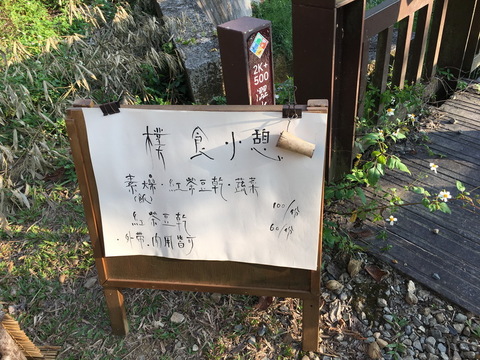 2K+
500
樸食小憩
素燥.紅茶豆乾.蔬菜
(飯)
100/份
紅茶豆乾
60/份
.外帶.內用皆可